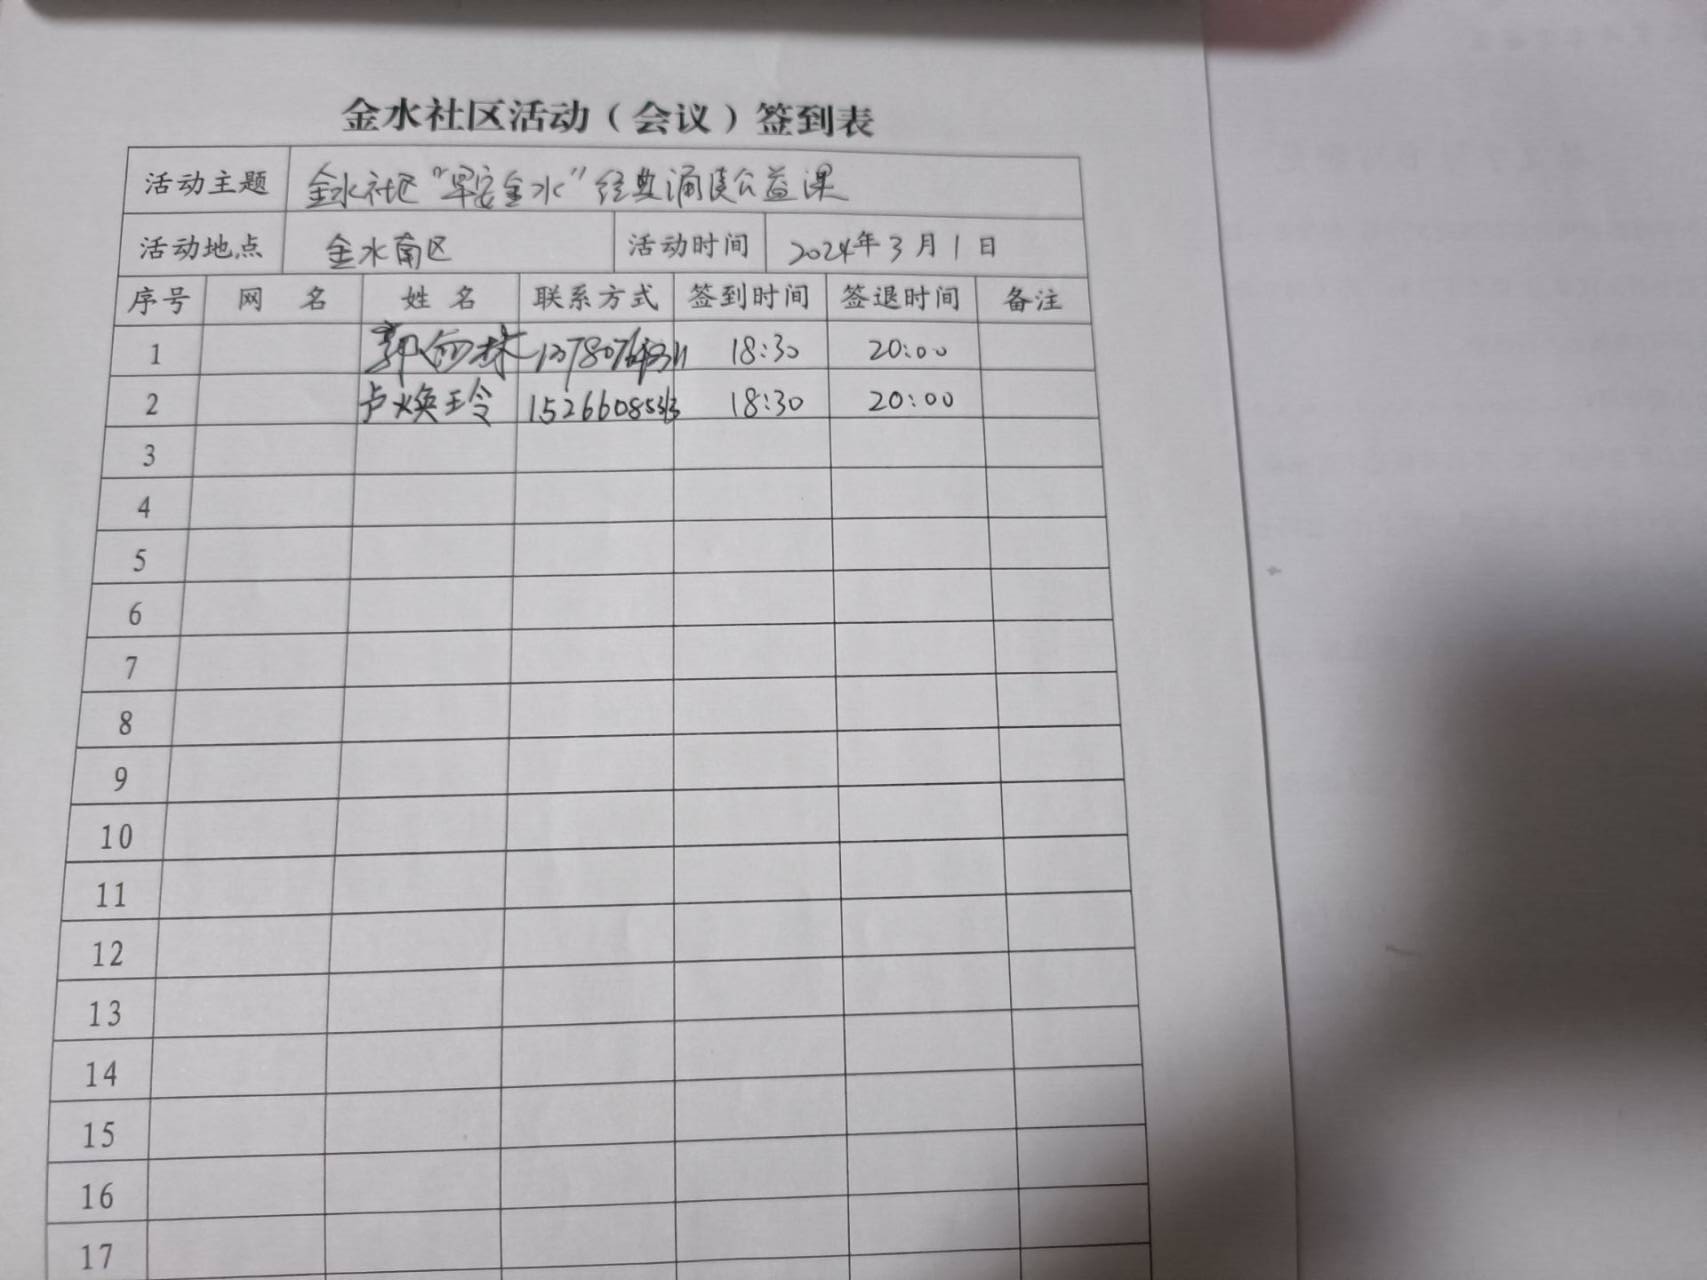 金水社区活动（会议）签到表
活动主题 金水社区“早安金水”经典诵读公益课
活动地点 金水南区 活动时间 2024年3月1日
序号 网名 姓名 联系方式 签到时间 签退时间 备注
1 18:30 20:00
2 卢焕玲 18:30 20:00
3
4
5
6
7
8
9
10
11
12
13
14
15
16
17